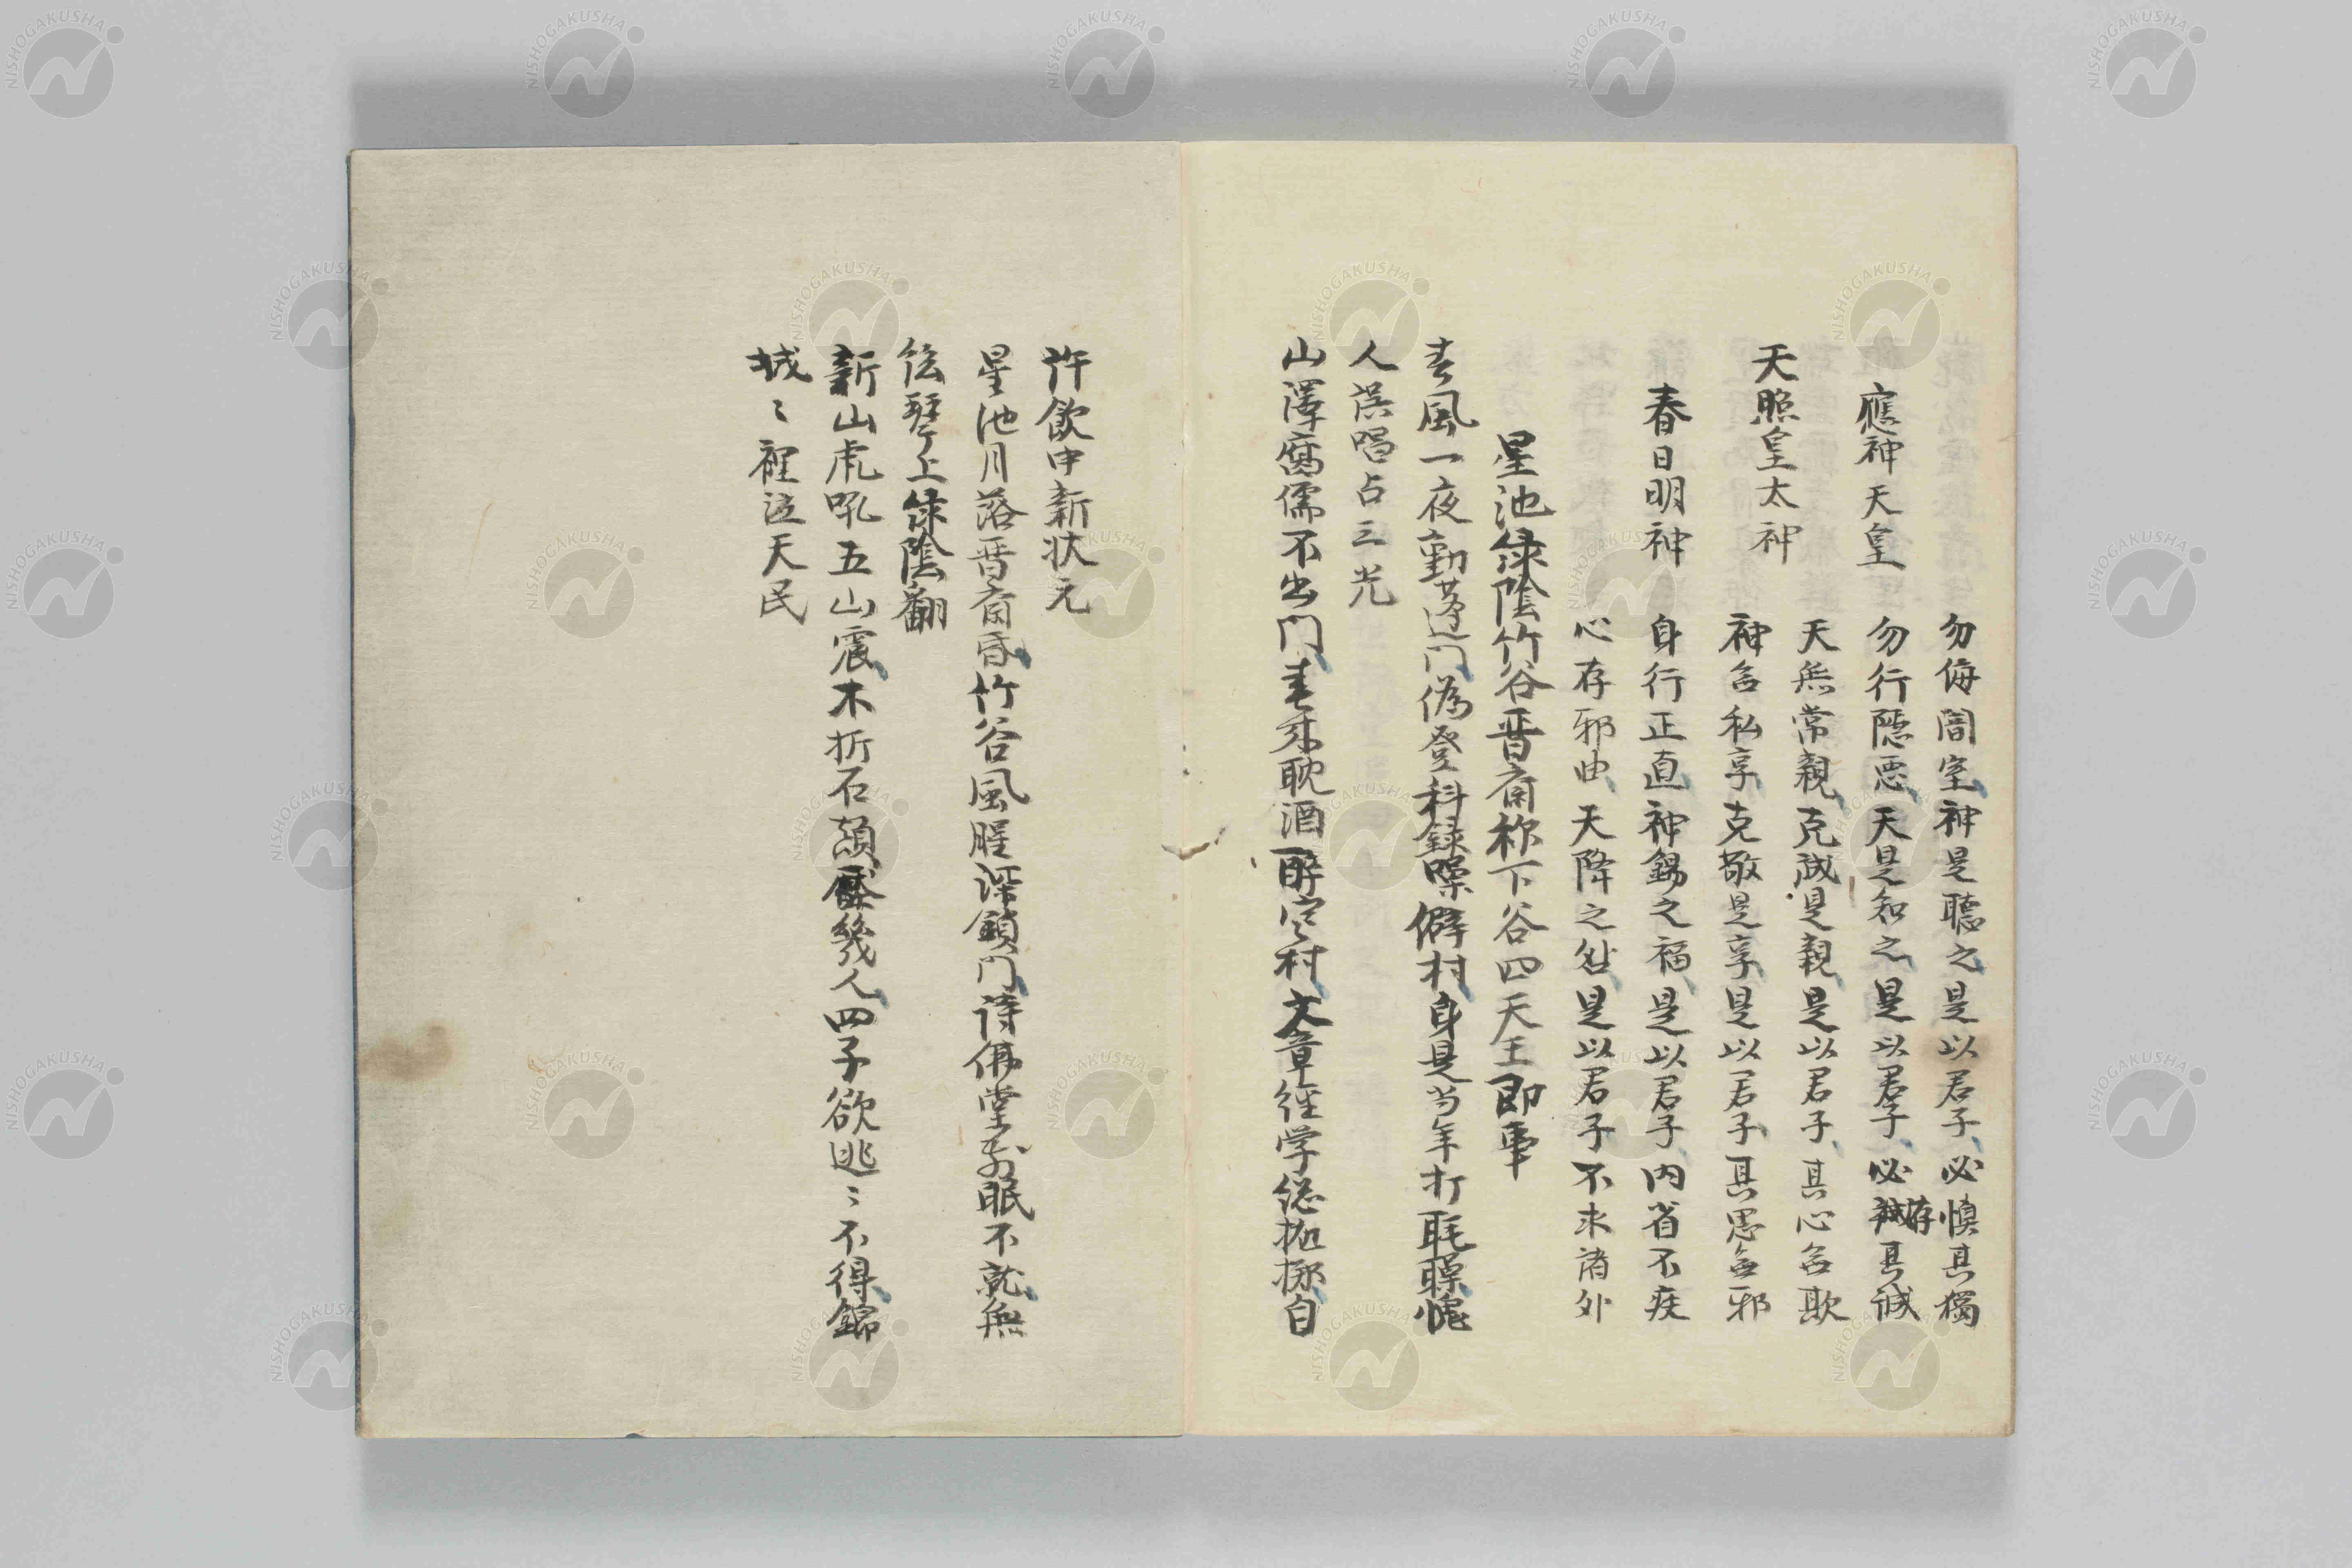 勿侮闇室神是聽之是以君子必慎其獨
應神天皇
勿行隱悪天是知之是以君子必存其誠
天無常親克誠是親是以君子其心含欺
天照皇太神
神含私享克敬是享是以君子其思含邪
春日明神
身行正直神錫之福是以君子内省不疚
心存邪曲天降之咎是以君子不求諸外
星池緑陰竹谷晋斎称下谷四天王即事
春風一夜動蓬門偽登科録噪僻村身是当年打毦愧
人誤唱占三光
山澤腐儒不出門春来耽酒酔空村文章経学総抛擲自
許飲中新状元
星池月落晋斎昏竹谷風腥深鎖門詩佛堂前眠不就無
絃琴上緑陰翻
新山虎吼五山震木折石頽幾人四子欲逃〻不得錦
城〻裡泣天民
NISHOGAKUSHA